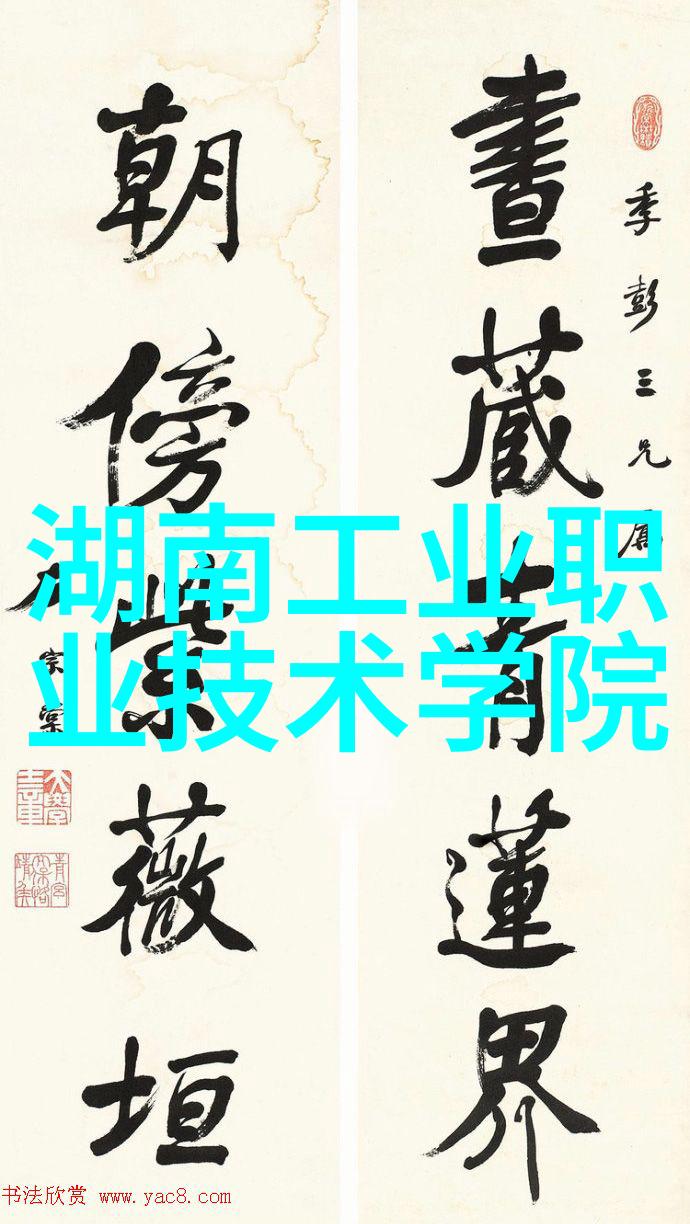 季彭三兄属
書藏青蓮界
朝傍紫薇垣
宗棠
湖南工业职
业技术学院
书法欣赏 www.yac8.com